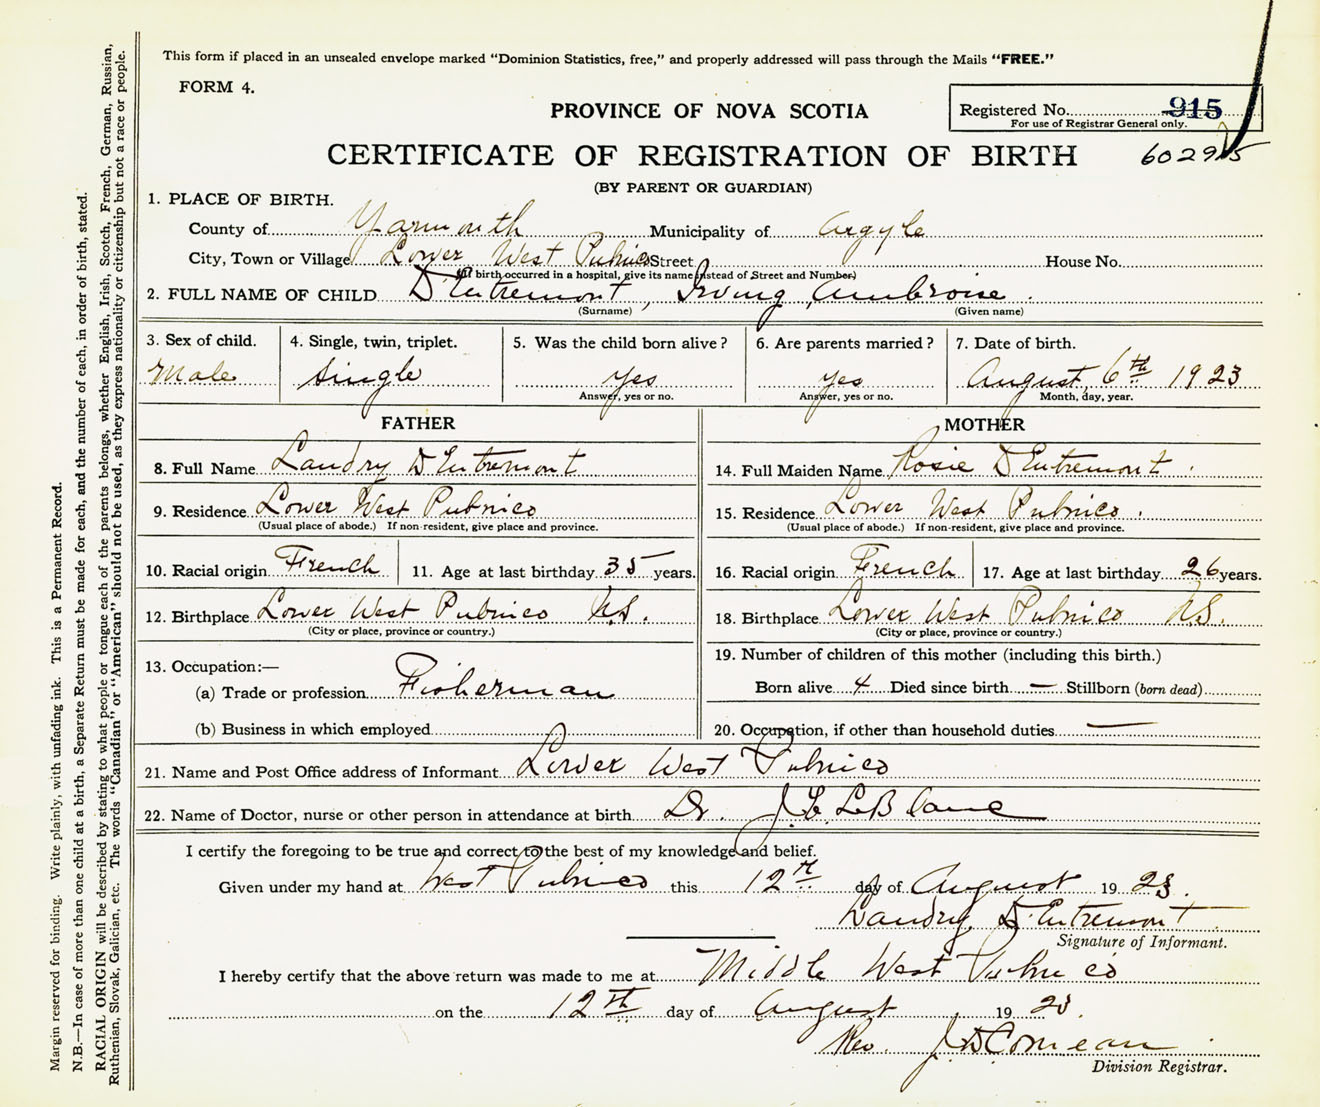 This form if placed in an unsealed envelope marked "Dominion Statistics, free," and properly addressed will pass through the Mails "FREE."
FORM 4.
PROVINCE OF NOVA SCOTIA
Registered No. 915
For use of Registrar General only.
CERTIFICATE OF REGISTRATION OF BIRTH
602915
(BY PARENT OR GUARDIAN)
1. PLACE OF BIRTH.
County of Yarmouth Municipality of Argyle
City, Town or Village Lower West Pubnico Street House No.
(If birth occurred in a hospital, give its name instead of Street and Number)
2. FULL NAME OF CHILD D'Entremont, Irving Ambroise.
(Surname) (Given name)
3. Sex of child. 4. Single, twin, triplet. 5. Was the child born alive? 6. Are parents married? 7. Date of birth.
Male single yes yes August, 6th 1923
Answer, yes or no. Answer, yes or no. Month, day, year.
FATHER MOTHER
8. Full Name Landry D'Entremont 14. Full Maiden Name Rosie D'Entremont.
9. Residence Lower West Pubnico 15. Residence Lower West Pubnico.
(Usual place of abode.) If non-resident, give place and province. (Usual place of abode.) If non-resident, give place and province.
10. Racial origin French 11. Age at last birthday 35 years. 16. Racial origin French 17. Age at last birthday 26 years.
12. Birthplace Lower West Pubnico N.S. 18. Birthplace Lower West Pubnico N.S.
(City or place, province or country.) (City or place, province or country.)
13. Occupation:— 19. Number of children of this mother (including this birth.)
(a) Trade or profession Fisherman Born alive 4 Died since birth — Stillborn (born dead)
(b) Business in which employed 20. Occupation, if other than household duties —
21. Name and Post Office address of Informant Lower West Pubnico
22. Name of Doctor, nurse or other person in attendance at birth Dr. LeBlanc
I certify the foregoing to be true and correct to the best of my knowledge and belief.
Given under my hand at West Pubnico this 12th day of August 1923.
Landry D'Entremont
Signature of Informant.
I hereby certify that the above return was made to me at Middle West Pubnico
on the 12th day of August 1923.
Rev. Comeau
Division Registrar.
Margin reserved for binding. Write plainly, with unfading ink. This is a Permanent Record.
N.B.—In case of more than one child at a birth, a Separate Return must be made for each, and the number of each, in order of birth, stated.
RACIAL ORIGIN will be described by stating to what people or tongue each of the parents belongs, whether English, Irish, Scotch, French, German, Russian,
Ruthenian, Slovak, Galician, etc. The words "Canadian" or "American" should not be used, as they express nationality or citizenship but not a race or people.